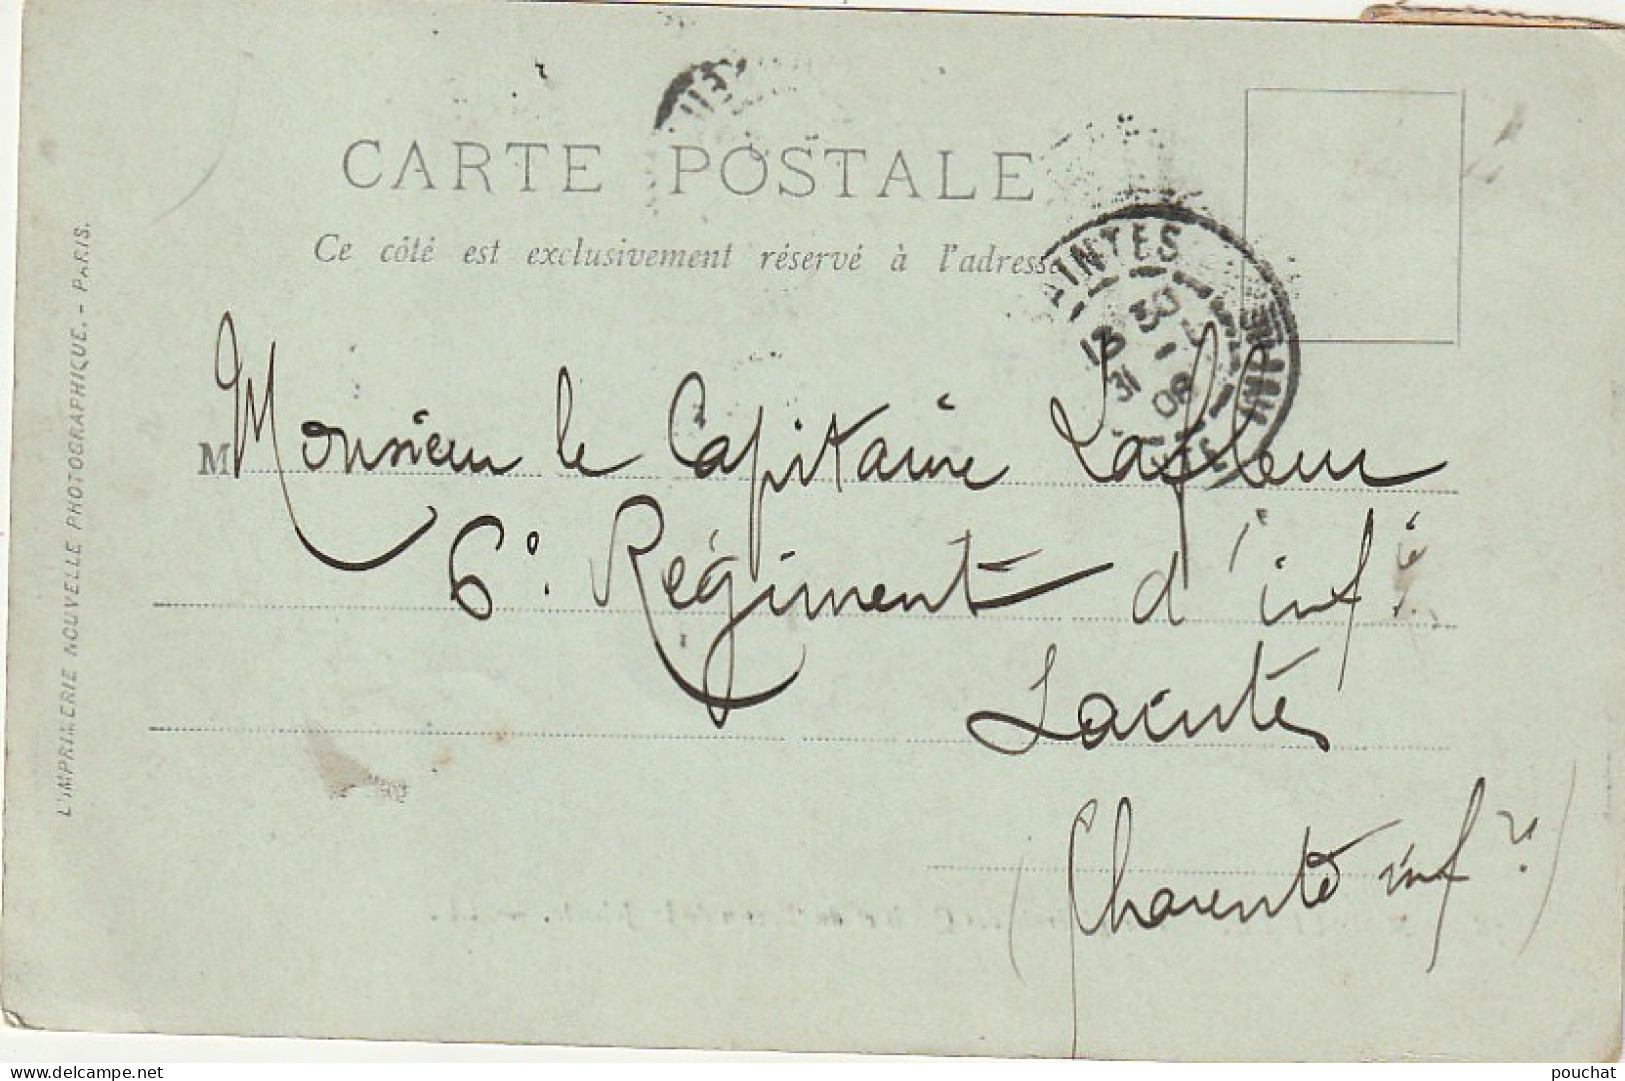 CARTE POSTALE
Ce côté est exclusivement réservé à l'adresse
INTES
13 30
31 - 1
08
M Monsieur le Capitaine Lafleur
6e. Régiment d'inf ie
Saintes
(Charente infre)
L'IMPRIMERIE NOUVELLE PHOTOGRAPHIQUE. - PARIS.
www.delcampe.net
pouchat